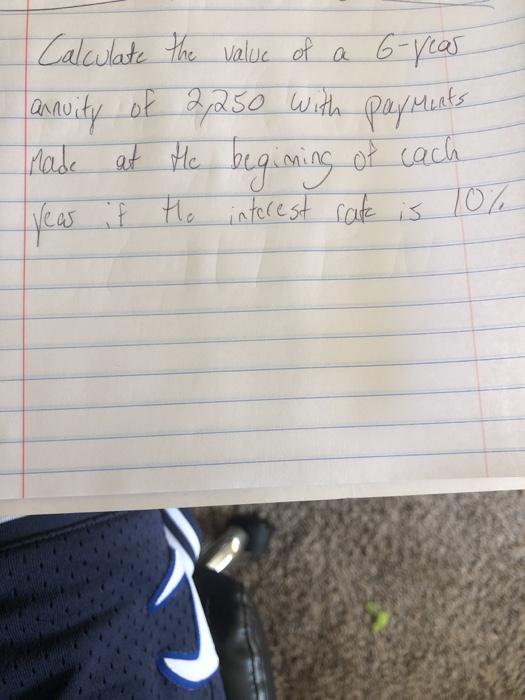 Calculate the value of a 6-year
annuity of 2,250 with payments
Made at the begining of each
year if the interest rate is 10%